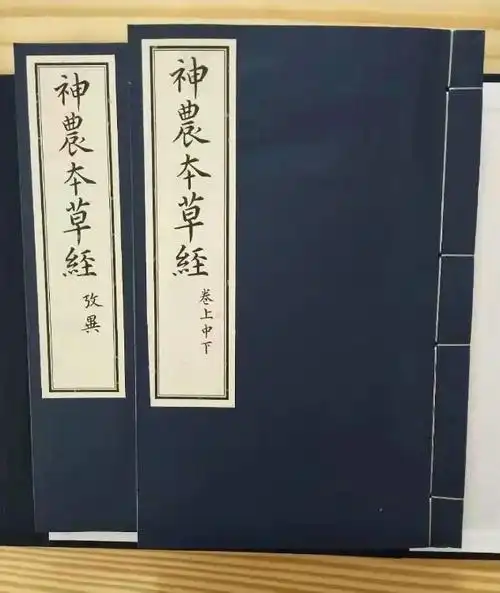 神農本草經
卷上中下
神農本草經
攷異